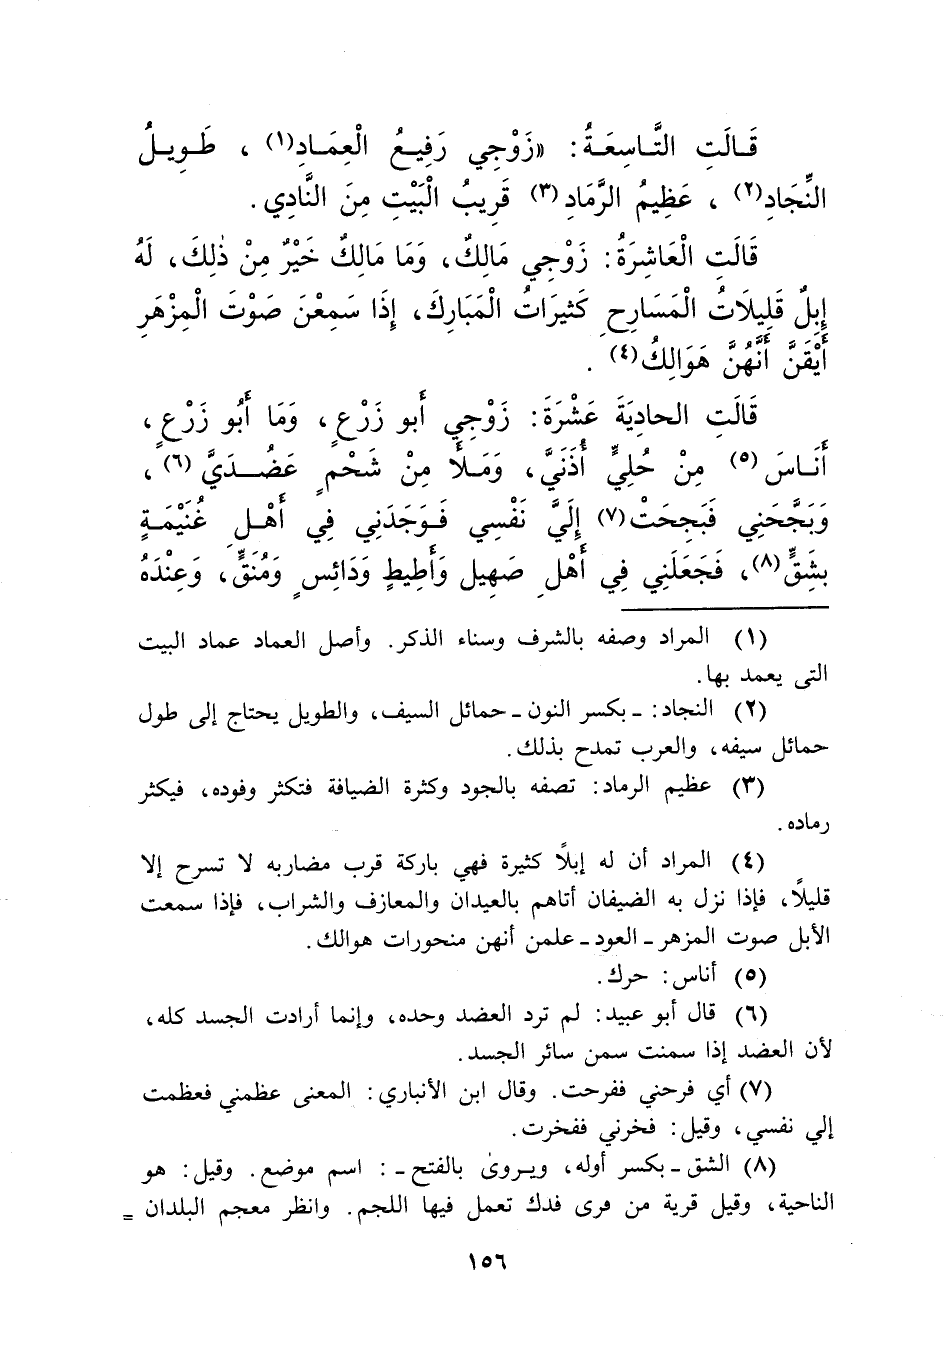 قَالَتِ التَّاسِعَةُ: «زَوْجِي رَفِيعُ الْعِمَادِ(١) ، طَوِيلُ
النِّجَادِ(٢) ، عَظِيمُ الرَّمَادِ(٣) قَرِيبُ الْبَيْتِ مِنَ النَّادِي .
قَالَتِ الْعَاشِرَةُ: زَوْجِي مَالِكٌ، وَمَا مَالِكٌ خَيْرٌ مِنْ ذٰلِكَ، لَهُ
إِبِلٌ قَلِيلَاتُ الْمَسَارِحِ كَثِيرَاتُ الْمَبَارِكِ، إِذَا سَمِعْنَ صَوْتَ الْمِزْهَرِ
أَيْقَنَّ أَنَّهُنَّ هَوَالِكُ(٤) .
قَالَتِ الحادِيَةَ عَشْرَةَ: زَوْجِي أَبو زَرْعٍ، وَمَا أَبُو زَرْعٍ،
أَنَاسَ(٥) مِنْ حُلِيٍّ أُذَنَيَّ، وَمَلأَ مِنْ شَحْمٍ عَضُدَيَّ(٦) ،
وَبَجَّحَنِي فَبَجِحَتْ(٧) إِلَيَّ نَفْسِي فَوَجَدَنِي فِي أَهْلِ غُنَيْمَةٍ
بِشَقٍّ(٨)، فَجَعَلَنِي فِي أَهْلِ صَهِيلٍ وَأَطِيطٍ وَدَائِسٍ وَمُنَقٍّ، وَعِنْدَهُ
(١) المراد وصفه بالشرف وسناء الذكر. وأصل العماد عماد البيت
التى يعمد بها.
(٢) النجاد: ـ بكسر النون ـ حمائل السيف، والطويل يحتاج إلى طول
حمائل سيفه، والعرب تمدح بذلك.
(٣) عظيم الرماد: تصفه بالجود وكثرة الضيافة فتكثر وفوده، فيكثر
رماده.
(٤) المراد أن له إبلاً كثيرة فهي باركة قرب مضاربه لا تسرح إلا
قليلاً، فإذا نزل به الضيفان أتاهم بالعيدان والمعازف والشراب، فإذا سمعت
الأبل صوت المزهر ـ العود ـ علمن أنهن منحورات هوالك.
(٥) أناس: حرك.
(٦) قال أبو عبيد: لم ترد العضد وحده، وإنما أرادت الجسد كله،
لأن العضد إذا سمنت سمن سائر الجسد.
(٧) أي فرحني ففرحت. وقال ابن الأنباري: المعنى عظمني فعظمت
إلي نفسي، وقيل: فخرني ففخرت.
(٨) الشق ـ بكسر أوله، ويروىٰ بالفتح ـ: اسم موضع. وقيل: هو
الناحية، وقيل قرية من فرى فدك تعمل فيها اللجم. وانظر معجم البلدان =
١٥٦